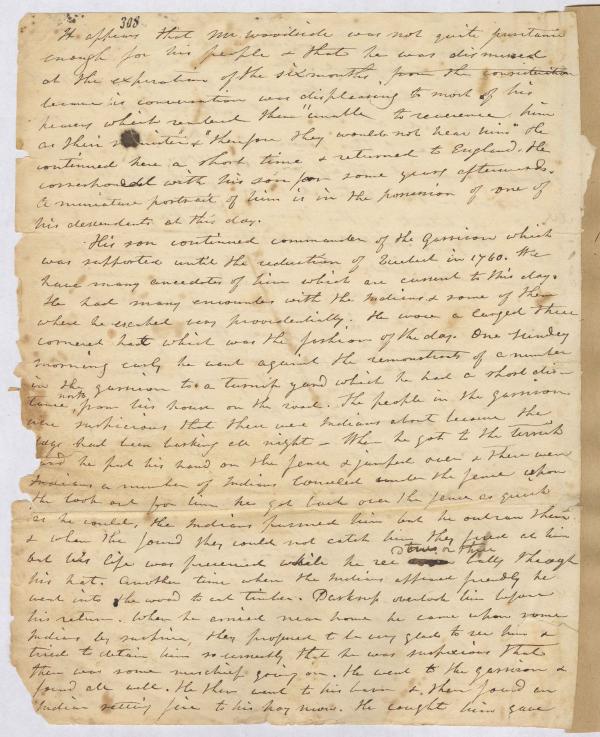 308
It appears that Mr Woodside was not quite puritanic
enough for his people & that he was dismissed
at the expiration of the six months, from the
because his conversation was displeasing to most of his
hearers which rendered them "unable to reverence him
as their minister & "therefore they would not hear him" He
continued here a short time & returned to England. He
corresponded with his son for some years afterwards.
A miniature portrait of him is in the possession of one of
his descendents at this day.
His son continued commander of the Garrison which
was supported until the reduction of Quebec in 1760. We
have many anecdotes of him which are current to this day.
He had many encounters with the Indians & some of them
where he escaped very providentially. He wore a large three
cornered hat which was the fashion of the day. One Sunday
morning early he went against the remonstrants of a number
in the garrison to a turnip yard which he had a short dis-
tance north from his house on the road. The people in the garrison
were suspicious that there were Indians about because the
dogs had been barking all night — When he got to the turnip
yard he put his hand on the fence & jumped over & there were
Indians a number of Indians conceled under the fence upon
the look out for him he got back over the fence as quick
as he could, the Indians pursued him but he outran them
& when the found they could not catch him they fired at him
but his life was preserved while he rec two or three balls through
his hat. Another time when the Indians appeared friendly he
went into the wood to cut timber. Darkness overtook him before
his return. When he arrived near home he came upon some
Indians by surprise, they professed to be very glad to see him &
tried to detain him so earnestly that he was suspicious that
there was some mischief going on. He went to the garrison &
found all well. He then went to his barn & there found an
Indian setting fire to his hay mow. He caught him gave